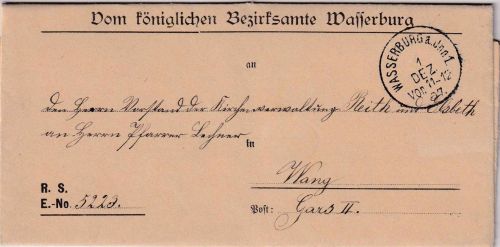 Vom königlichen Bezirksamte Wasserburg
WASSERBURG a. Inn 1.
1
DEZ.
VOR. 11-12
97.
an
den Herrn Vorstand der Kirchenverwaltung Reith und
an Herrn Pfarrer Lechner
in
Wang
R. S.
E.-No. 5223.
Post: Gars II.